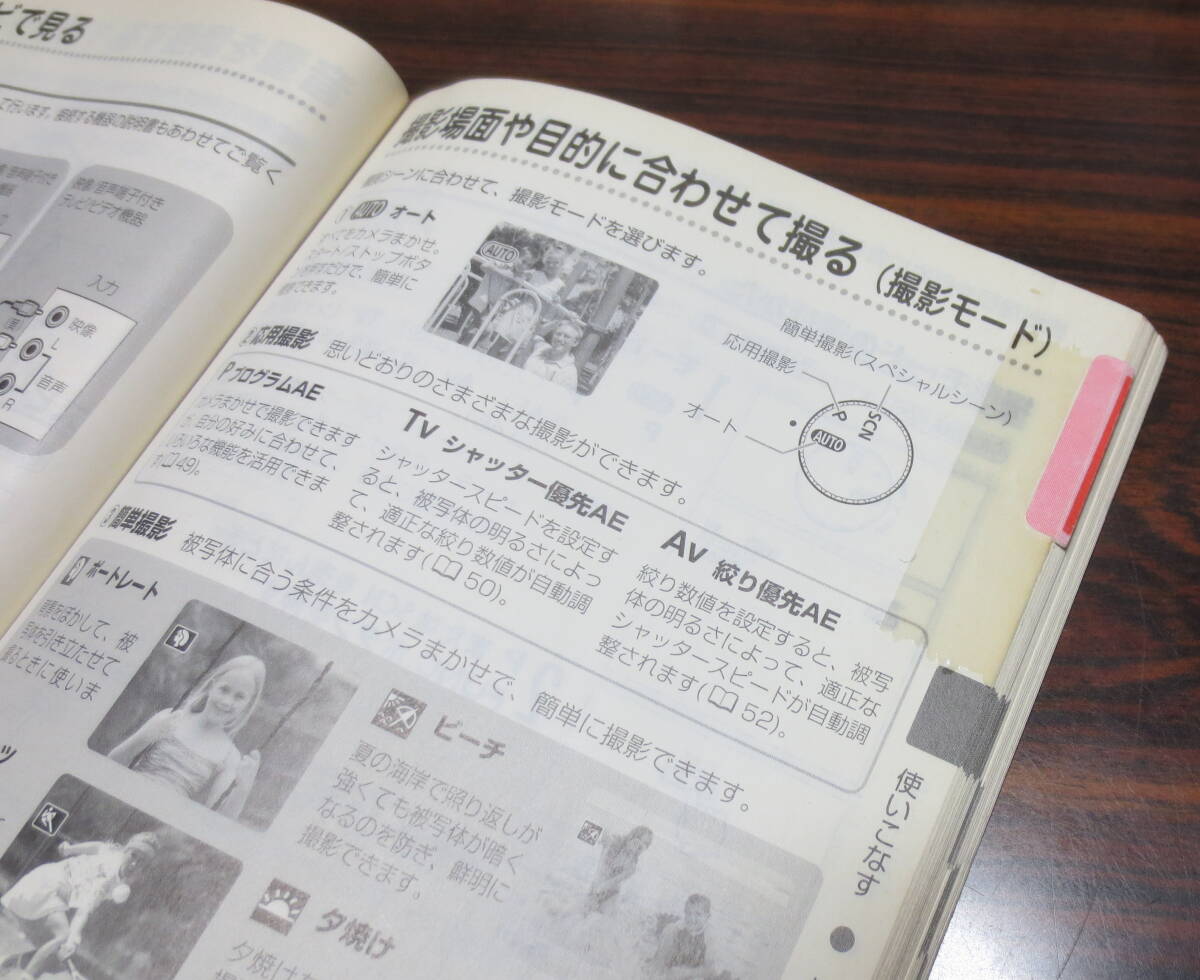 ビで見る
て行います。接続する機器の説明書もあわせてご覧く
映像/音声端子付き
テレビ/ビデオ機器
入力
映像
L
音声
R
撮影場面や目的に合わせて撮る（撮影モード）
撮影シーンに合わせて、撮影モードを選びます。
① AUTO オート
すべてをカメラまかせ。
スタート/ストップボタ
ンを押すだけで、簡単に
撮影できます。
AUTO
簡単撮影（スペシャルシーン）
応用撮影
オート
P
SCN
AUTO
②応用撮影 思いどおりのさまざまな撮影ができます。
P プログラムAE
カメラまかせで撮影できます
が、自分の好みに合わせて、
いろいろな機能を活用できま
す(49)。
Tv シャッター優先AE
シャッタースピードを設定す
ると、被写体の明るさによっ
て、適正な絞り数値が自動調
整されます(50)。
Av 絞り優先AE
絞り数値を設定すると、被写
体の明るさによって、適正な
シャッタースピードが自動調
整されます(52)。
③簡単撮影 被写体に合う条件をカメラまかせで、簡単に撮影できます。
ポートレート
背景をぼかして、被
写体を引き立たせて
撮るときに使いま
ツ
ビーチ
夏の海岸で照り返しが
強くても被写体が暗く
なるのを防ぎ、鮮明に
撮影できます。
夕焼け
使いこなす